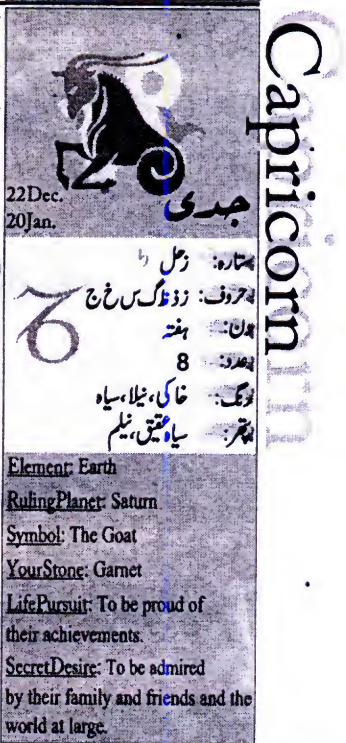 Capricorn
22Dec.
20Jan.
جدی
ستارہ: زحل
حروف: ز ذ گ س خ ج
دن: ہفتہ
عدد: 8
رنگ: خاکی، نیلا، سیاہ
پتھر: سیاہ عقیق، نیلم
Element: Earth
RulingPlanet: Saturn
Symbol: The Goat
YourStone: Garnet
LifePursuit: To be proud of
their achievements.
SecretDesire: To be admired
by their family and friends and the
world at large.